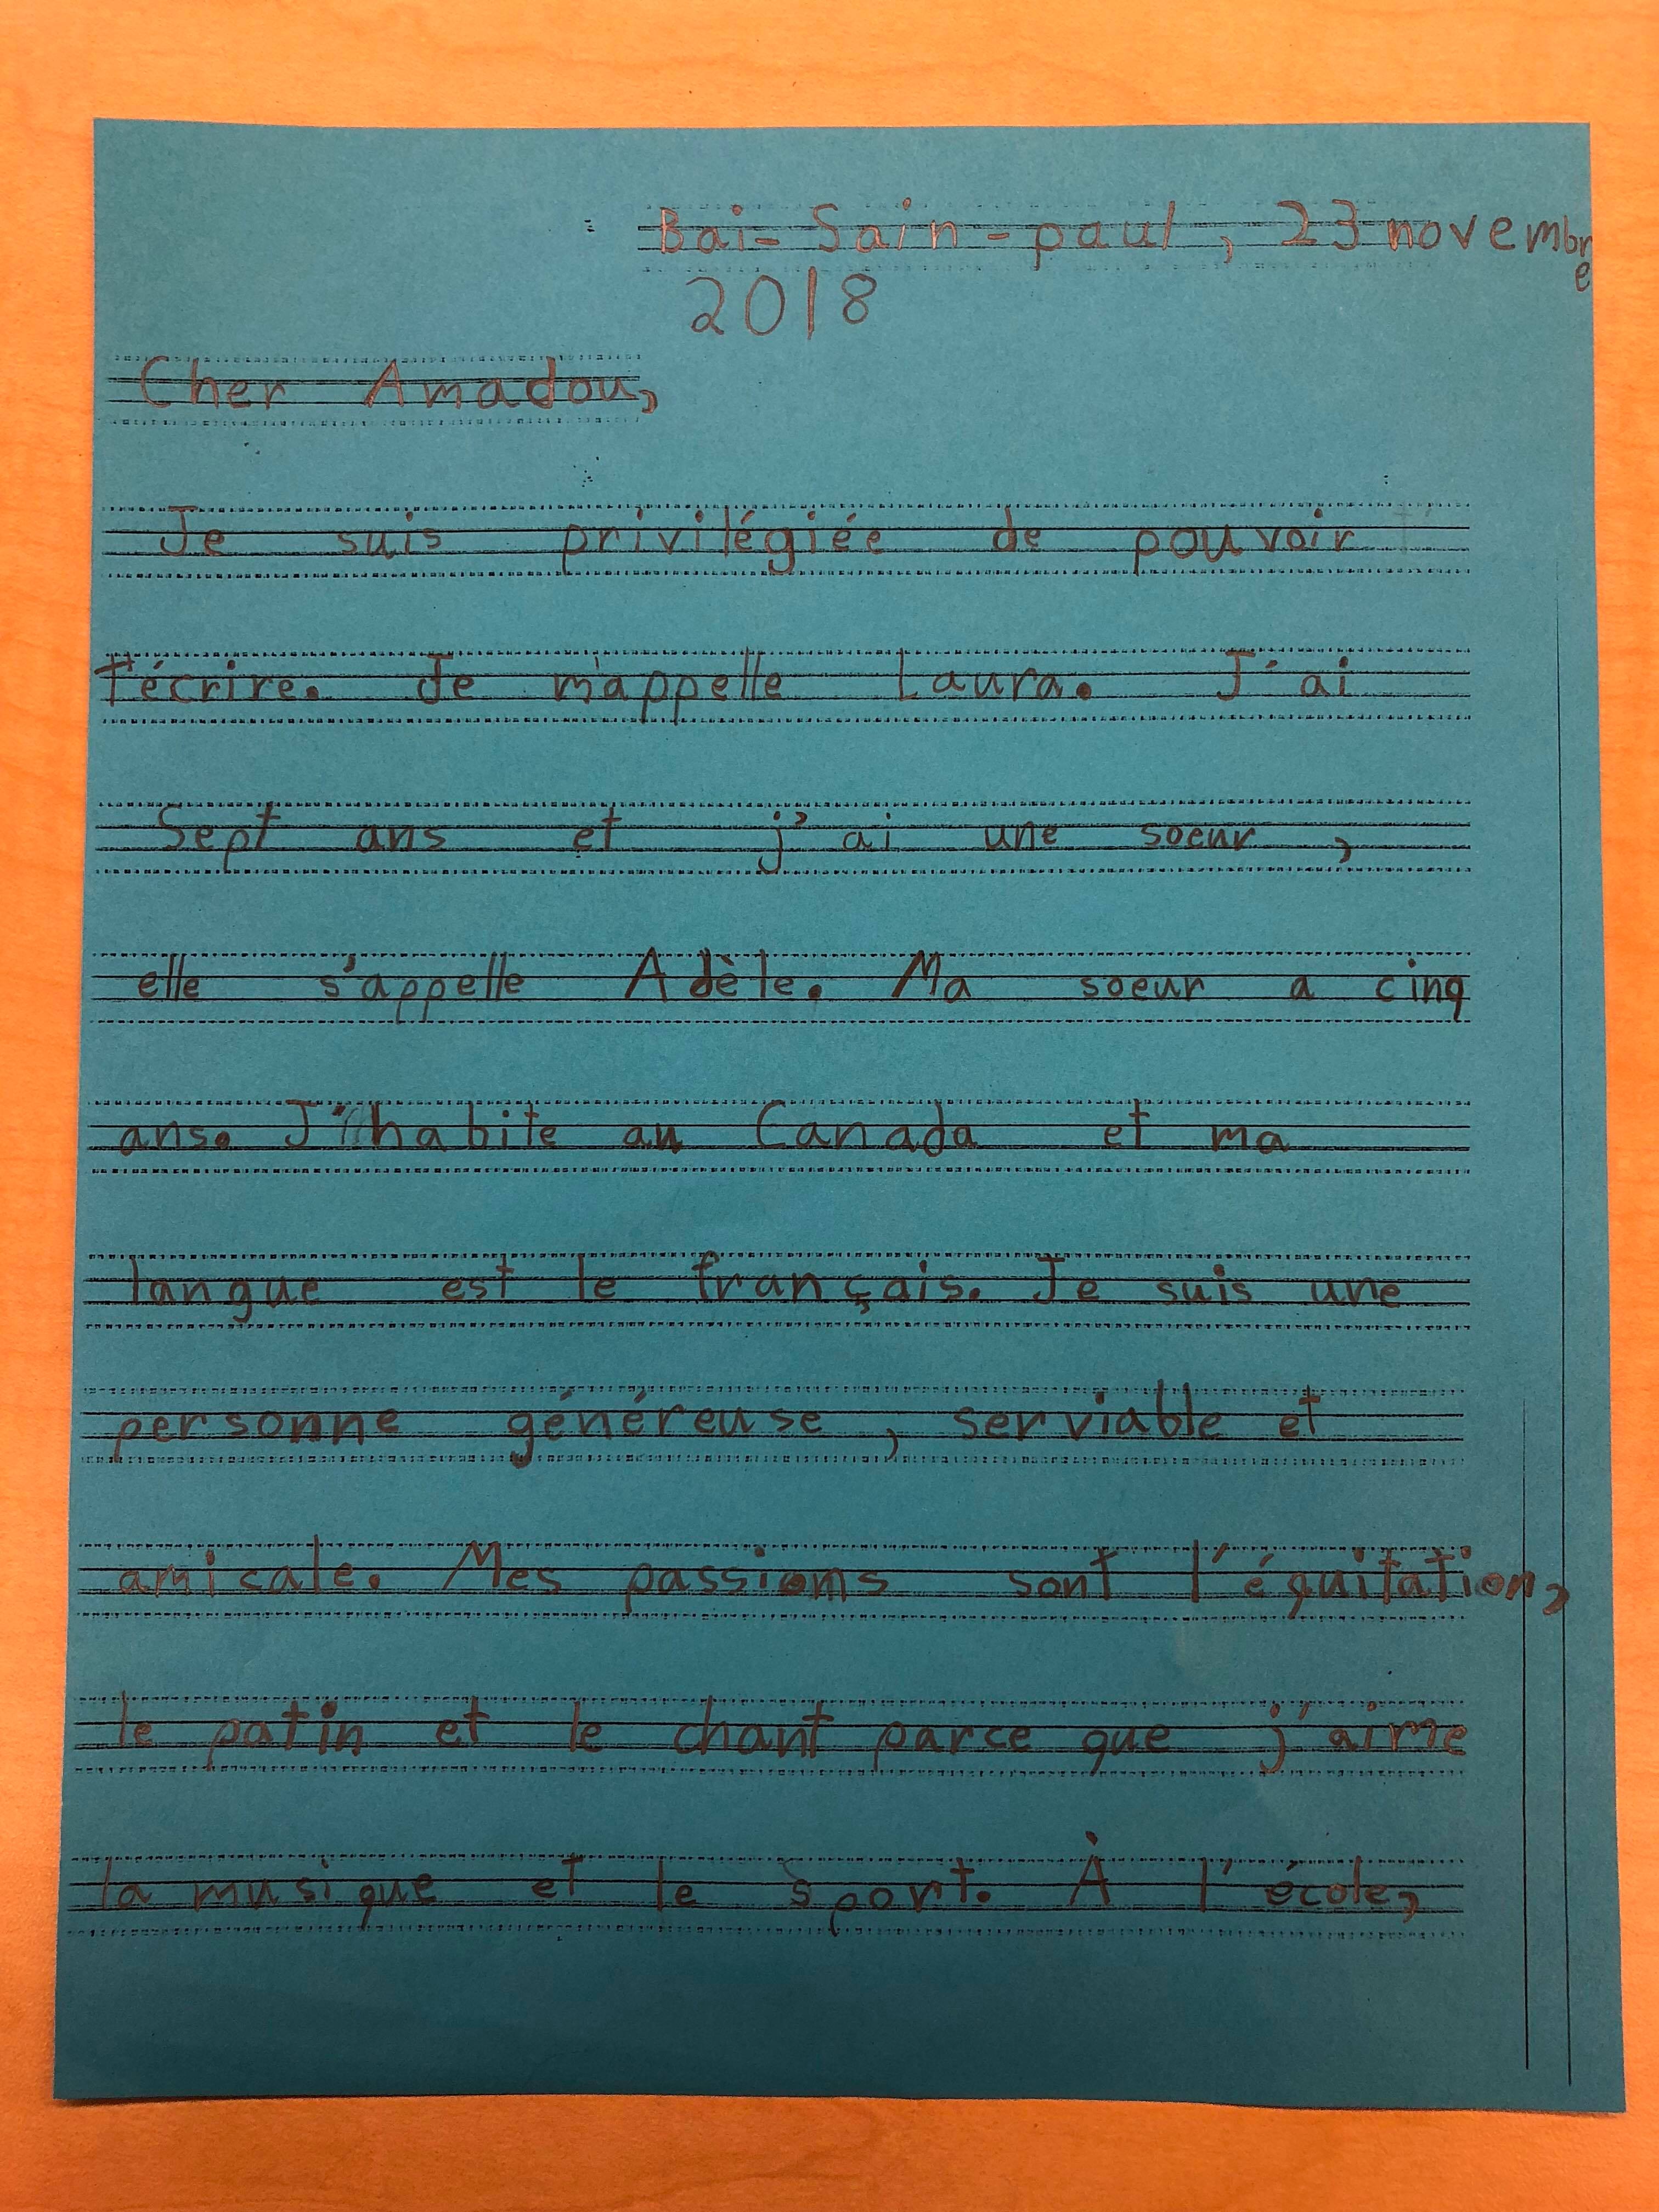 Bai-Sain-paul, 23 novembre
2018
Cher Amadou,
Je suis privilégiée de pouvoir
t'écrire. Je m'appelle Laura. J'ai
Sept ans et j'ai une soeur,
elle s'appelle Adèle. Ma soeur a cinq
ans. J'habite au Canada et ma
langue est le français. Je suis une
personne généreuse, serviable et
amicale. Mes passions sont l'équitation,
le patin et le chant parce que j'aime
la musique et le sport. À l'école,